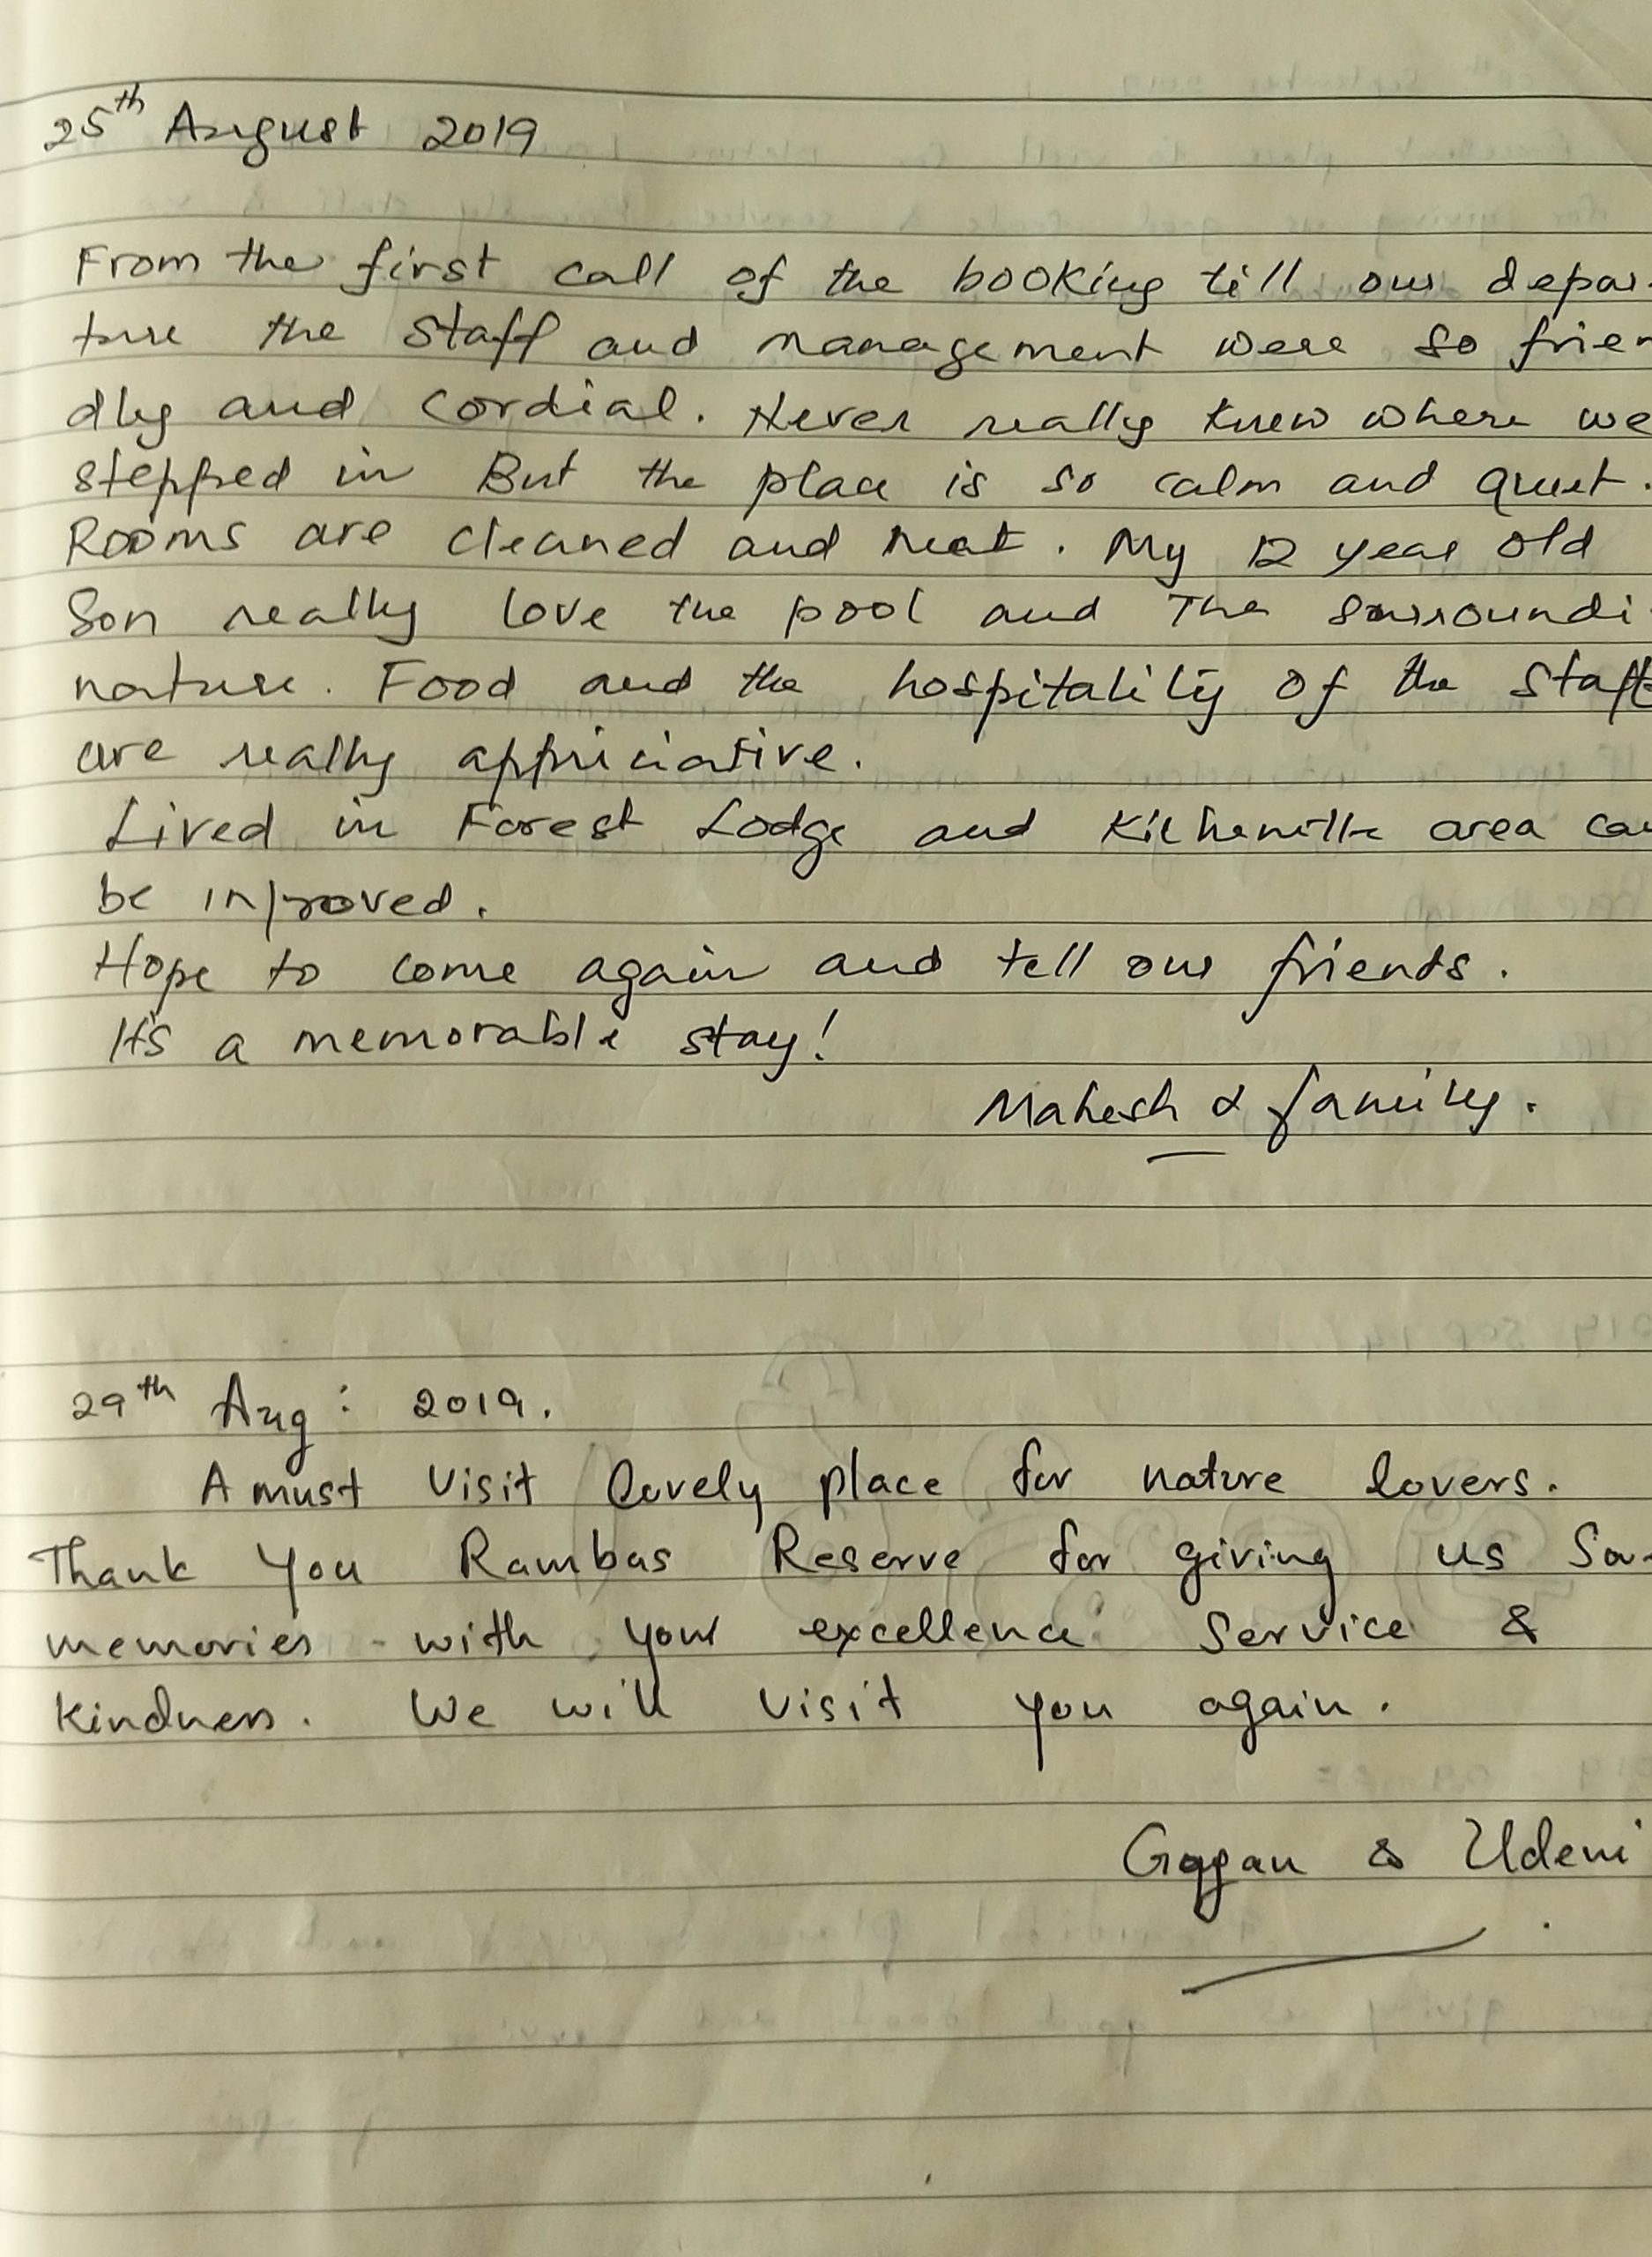 25th August 2019
From the first call of the booking till our depar-
ture the staff and management were so frien
dly and cordial. Never really knew where we
stepped in But the place is so calm and quiet.
Rooms are cleaned and neat. My 12 year old
Son really love the pool and The surroundi
nature. Food and the hospitality of the staff
are really appriciative.
Lived in Forest Lodge and area can
be improved.
Hope to come again and tell our friends.
It's a memorable stay!
Mahesh & family.
29th Aug: 2019.
A must visit lovely place for nature lovers.
Thank You Rambas Reserve for giving us
memories with your excellence Service &
kindness. We will visit you again.
Gagan & Udeni